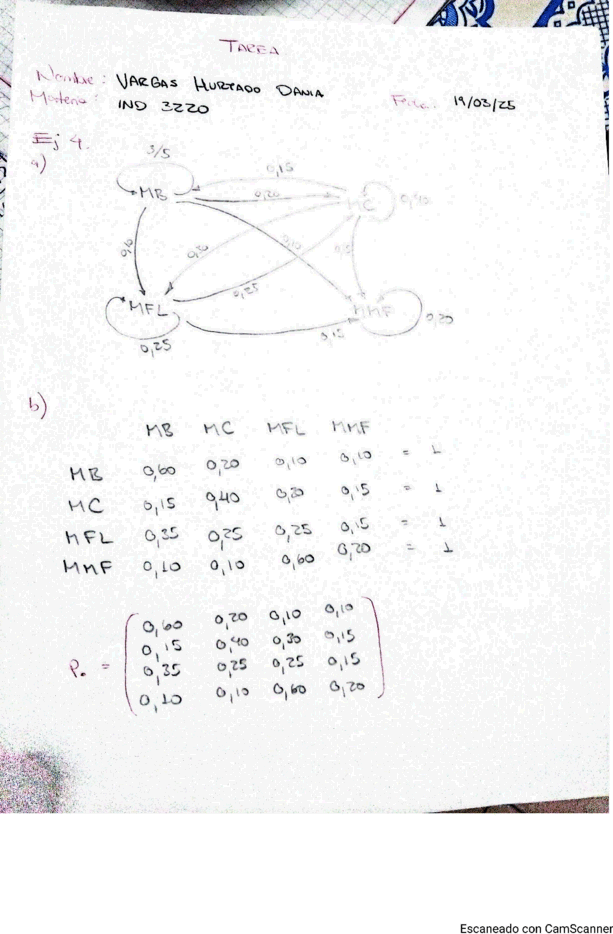 TAREA
Nombre: VARGAS HURTADO DANIA
Materia: IND 3220 Fecha: 19/03/25
Ej 4.
a)
3/5
0,15
MB 0,20 MC 0,40
0,10 0,30 0,10 0,15
0,25
MFL MMF 0,20
0,15
0,25
b)
MB MC MFL MMF
MB 0,60 0,20 0,10 0,10 = 1
MC 0,15 0,40 0,30 0,15 = 1
MFL 0,35 0,25 0,25 0,15 = 1
MMF 0,10 0,10 0,60 0,20 = 1
0,60 0,20 0,10 0,10
0,15 0,40 0,30 0,15
P. = 0,35 0,25 0,25 0,15
0,10 0,10 0,60 0,20
Escaneado con CamScanner